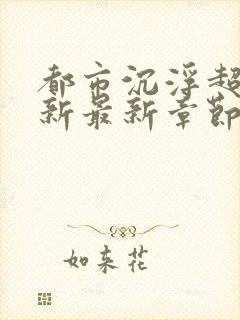 都市沉浮超
新最新章節
如来花